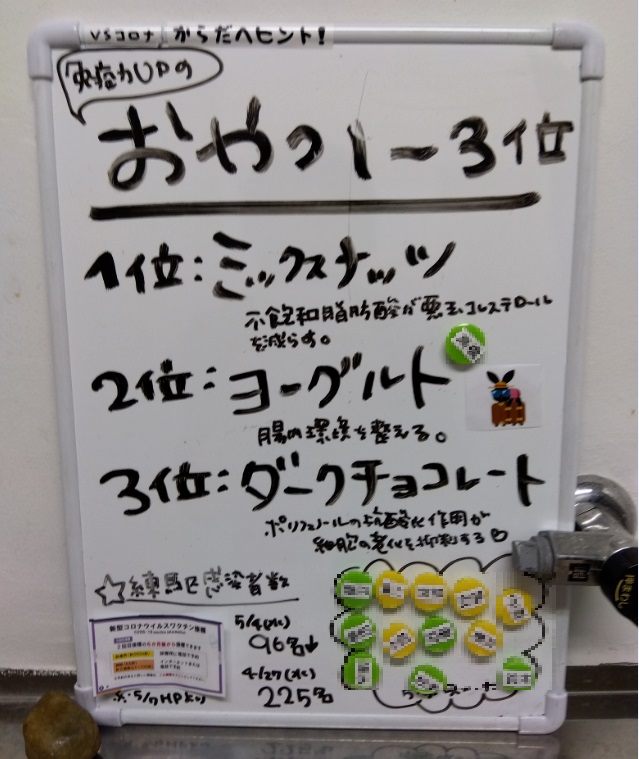 VSコロナ からだへヒント!
免疫力UPの
おやつ1~3位
1位:ミックスナッツ
不飽和脂肪酸が悪玉コレステロール
を減らす。
2位:ヨーグルト
腸内環境を整える。
3位:ダークチョコレート
ポリフェノールの抗酸化作用が
細胞の老化を抑制する
☆練馬区感染者数
新型コロナウイルスワクチン接種
5/4(水)
96名↓
4/27(水)
225名
※:5/7HPより